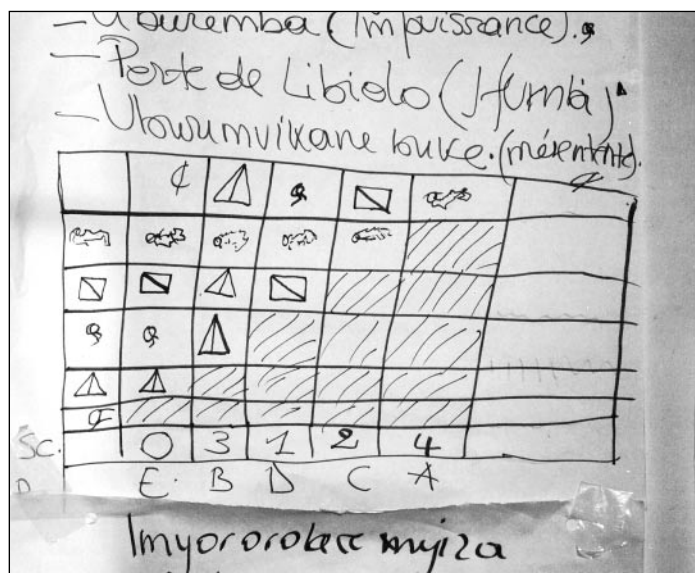 - Uburemba (Impuissance).
- Perte de Libido (
- Ubwumvikane buke. (mésentente).
Sc. 0 3 1 2 4
E. B D C A
Imyororokere myiza